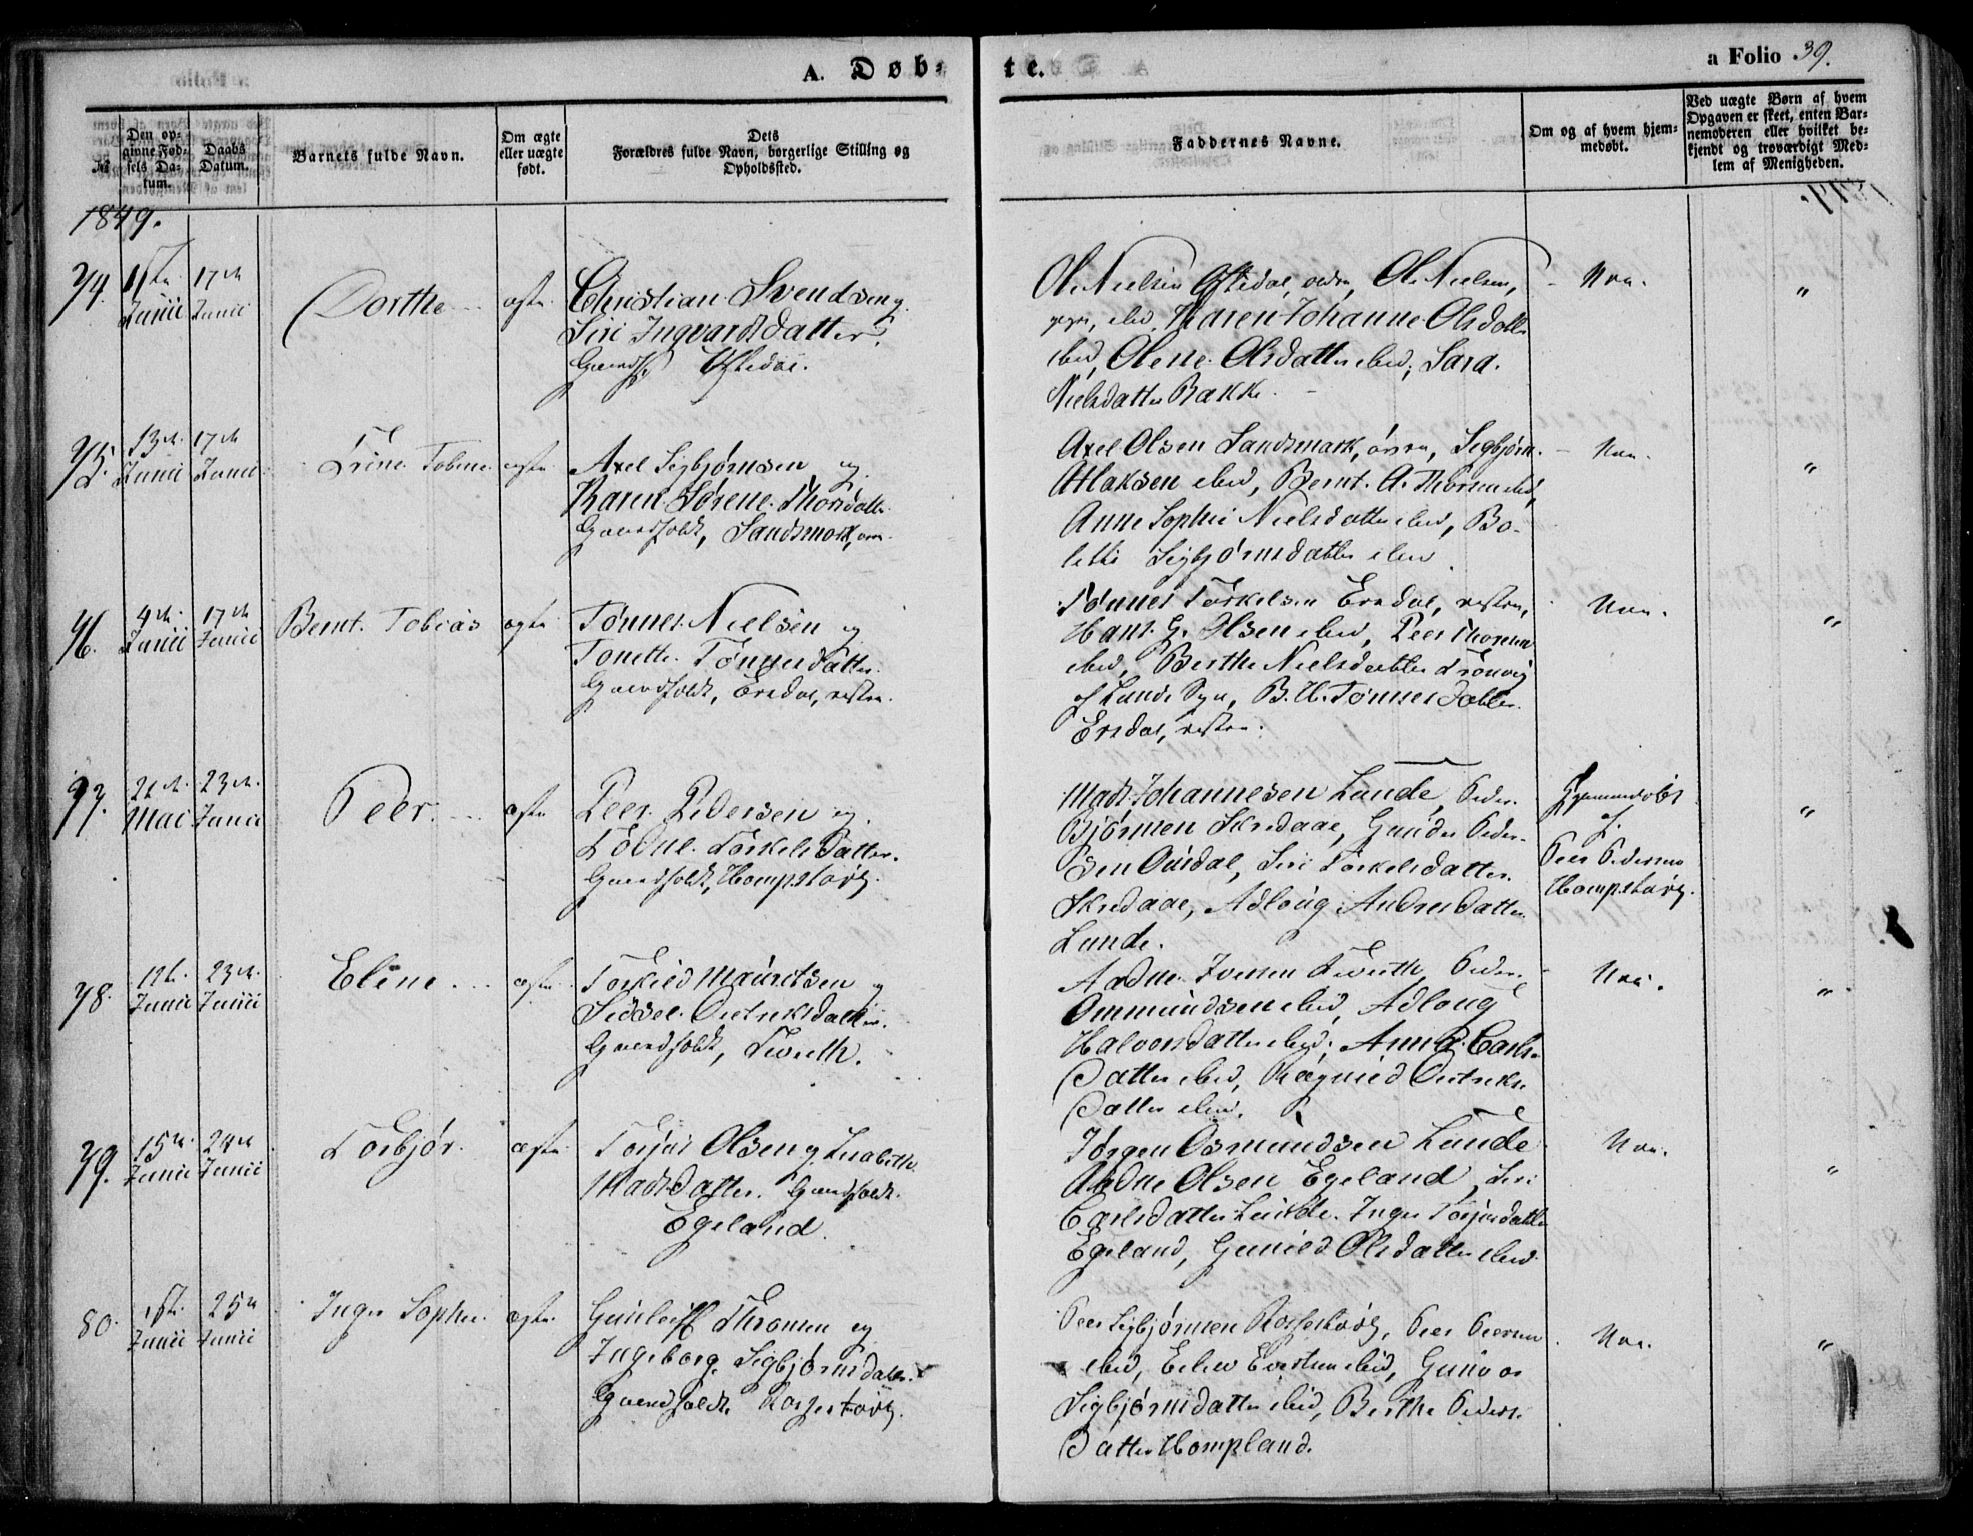 A. Døb-
te.
a Folio 39.
№
Den op-
givne Fød-
sels Da-
tum.
Daabs
Datum.
Barnets fulde Navn.
Om ægte
eller uægte
født.
Dets
Forældres fulde Navn, borgerlige Stilling og
Opholdssted.
Faddernes Navne.
Om og af hvem hjem-
medøbt.
Ved uægte Børn af hvem
Opgaven er skeet, enten Bar-
nemoderen eller hvilket be-
kjendt og troværdigt Med-
lem af Menigheden.
1849.
74.
Junii
17de
Junii
Dorthe
ægte
Christian Svendsen og
Siri Ingvardsdatter.
Gaardf.
Ole Nielsen
Ole Nielsen,
Karen Johanne Olsdatter
ibid, Olene Olsdatter ibid, Sara
Nielsdatter Bakke.
Nei.
"
75.
13de
Junii
17de
Junii
Trine Tobine
ægte
Axel Sigbjørnsen og
Karen Sørene Thorsdatter
Gaardfolk, Sandsmark,
Axel Olsen Sandsmark, øvre, Sigbjørn
Atlaksen ibid, Bernt A. ibid,
Anne Sophie Nielsdatter ibid, Bo-
lette Sigbjørnsdatter ibid.
Nei.
"
76.
4de
Junii
17de
Junii
Bernt Tobias
ægte
Tønnes Nielsen og
Tonette Tønnesdatter
Gaardfolk, Eisdal, vestre.
Tønnes Torkelsen Eisdal, vestre,
Hans G. Olsen ibid, Peer
ibid, Berthe Nielsdatter
af Lunde Sogn, B. H. Tønnesdatter
Eisdal, vestre.
Nei.
"
77.
Mai
23de
Junii
Peer
ægte
Peer Pedersen og
Torkelsdatter.
Gaardfolk, Hompstorg.
Mads Johannesen Lunde, Peder
Bjørnsen Skredaae, Gunder Peder-
sen Omdal, Siri Torkelsdatter
Skredaae, Adloug Andersdatter
Lunde.
Hjemmedøbt
af
Peer Pedersen
Hompstorg.
"
78.
Junii
23de
Junii
Eline
ægte
Torkild Mauritsen og
Sidsel Dedriksdatter.
Gaardfolk,
Aadne Iversen Peder
Ommundsen ibid, Adloug
Halvorsdatter ibid, Anna Carls-
datter ibid, Ragnild Dedriks-
datter ibid.
Nei.
"
79.
15de
Junii
24de
Junii
Torbjør
ægte
Torjus Olsen og Lisabeth
Madsdatter. Gaardfolk
Egeland.
Jørgen Osmundsen Lunde
Aadne Olsen Egeland, Siri
Carlsdatter Lunde. Inger Torjusdatter
Egeland, Gunild Olsdatter ibid
Nei.
"
80.
1ste
Junii
25de
Junii
Inger Sophie
ægte
Gunleiff Thronsen og
Ingeborg Sigbjørnsdatter.
Gaardfolk
Peer Sigbjørnsen Peer Peersen
ibid, ibid, Gunvor
Sigbjørnsdatter ibid, Berthe Peders-
datter Hompland.
Nei.
"